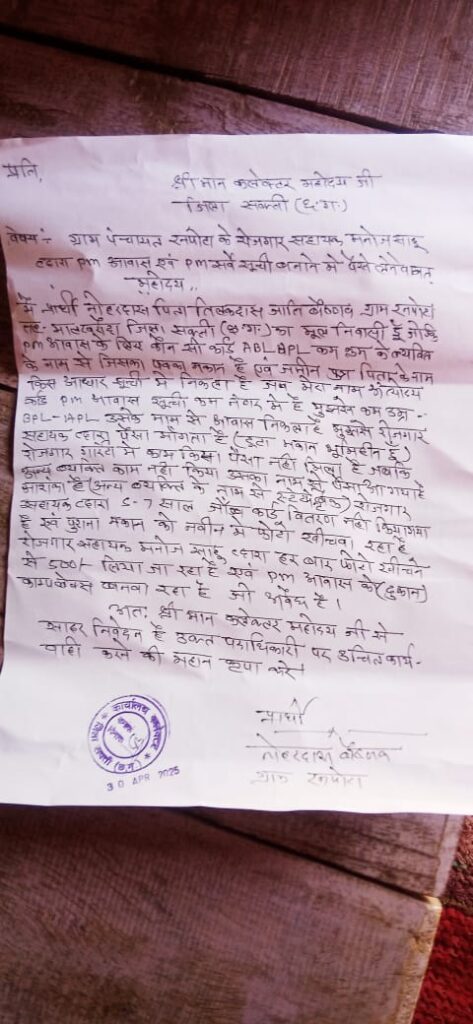 प्रति,
श्री मान कलेक्टर महोदय जी
जिला सक्ती (छ.ग.)
विषय :- ग्राम पंचायत रनपोटा के रोजगार सहायक मनोज साहू
द्वारा pm आवास एवं pm सर्वे सूची बनाने में पैसे लेने
महोदय,
मैं प्रार्थी नोहरदास पिता तिलकदास जाति वैष्णव ग्राम रनपोटा
तह- मालखरौदा जिला सक्ती (छ.ग.) का मूल निवासी हूं
pm आवास के लिए कौन सी कार्ड ABL-BPL कम क्रम के व्यक्ति
के नाम से जिसका पक्का मकान है एवं जमीन पिता के नाम
किस आधार सूची में निकला है जब मेरा नाम अंत्योदय
कार्ड pm आवास सूची कम नंबर में है मुझसे कम उम्र -
BPL-IAPL उसके नाम से आवास निकला है मुझसे रोजगार
सहायक द्वारा पैसा मांगता है (टुटा मकान भूमिहीन हूं)
रोजगार गारंटी में काम किया पैसा नहीं मिला है जबकि
अन्य व्यक्ति काम नहीं किया उसका नाम से पैसा आ गया है
(अन्य व्यक्ति के नाम से ) रोजगार
सहायक द्वारा 5-7 साल जॉब कार्ड वितरण नहीं किया गया
है एवं पुराना मकान को नवीन में फोटो खींचवा रहा है
रोजगार सहायक मनोज साहू द्वारा हर बार फोटो खींचने
से 500/- लिया जा रहा है एवं pm आवास को (दुकान)
काम्प्लेक्स बनवा रहा है जो अवैध है ।
अतः श्री मान कलेक्टर महोदय जी से
सादर निवेदन है उक्त पदाधिकारी पर उचित कार्य-
वाही करने की महान कृपा करें।
प्रार्थी
नोहरदास वैष्णव
ग्राम रनपोटा
कार्यालय कलेक्टर
(छ.ग.)
30 APR 2025